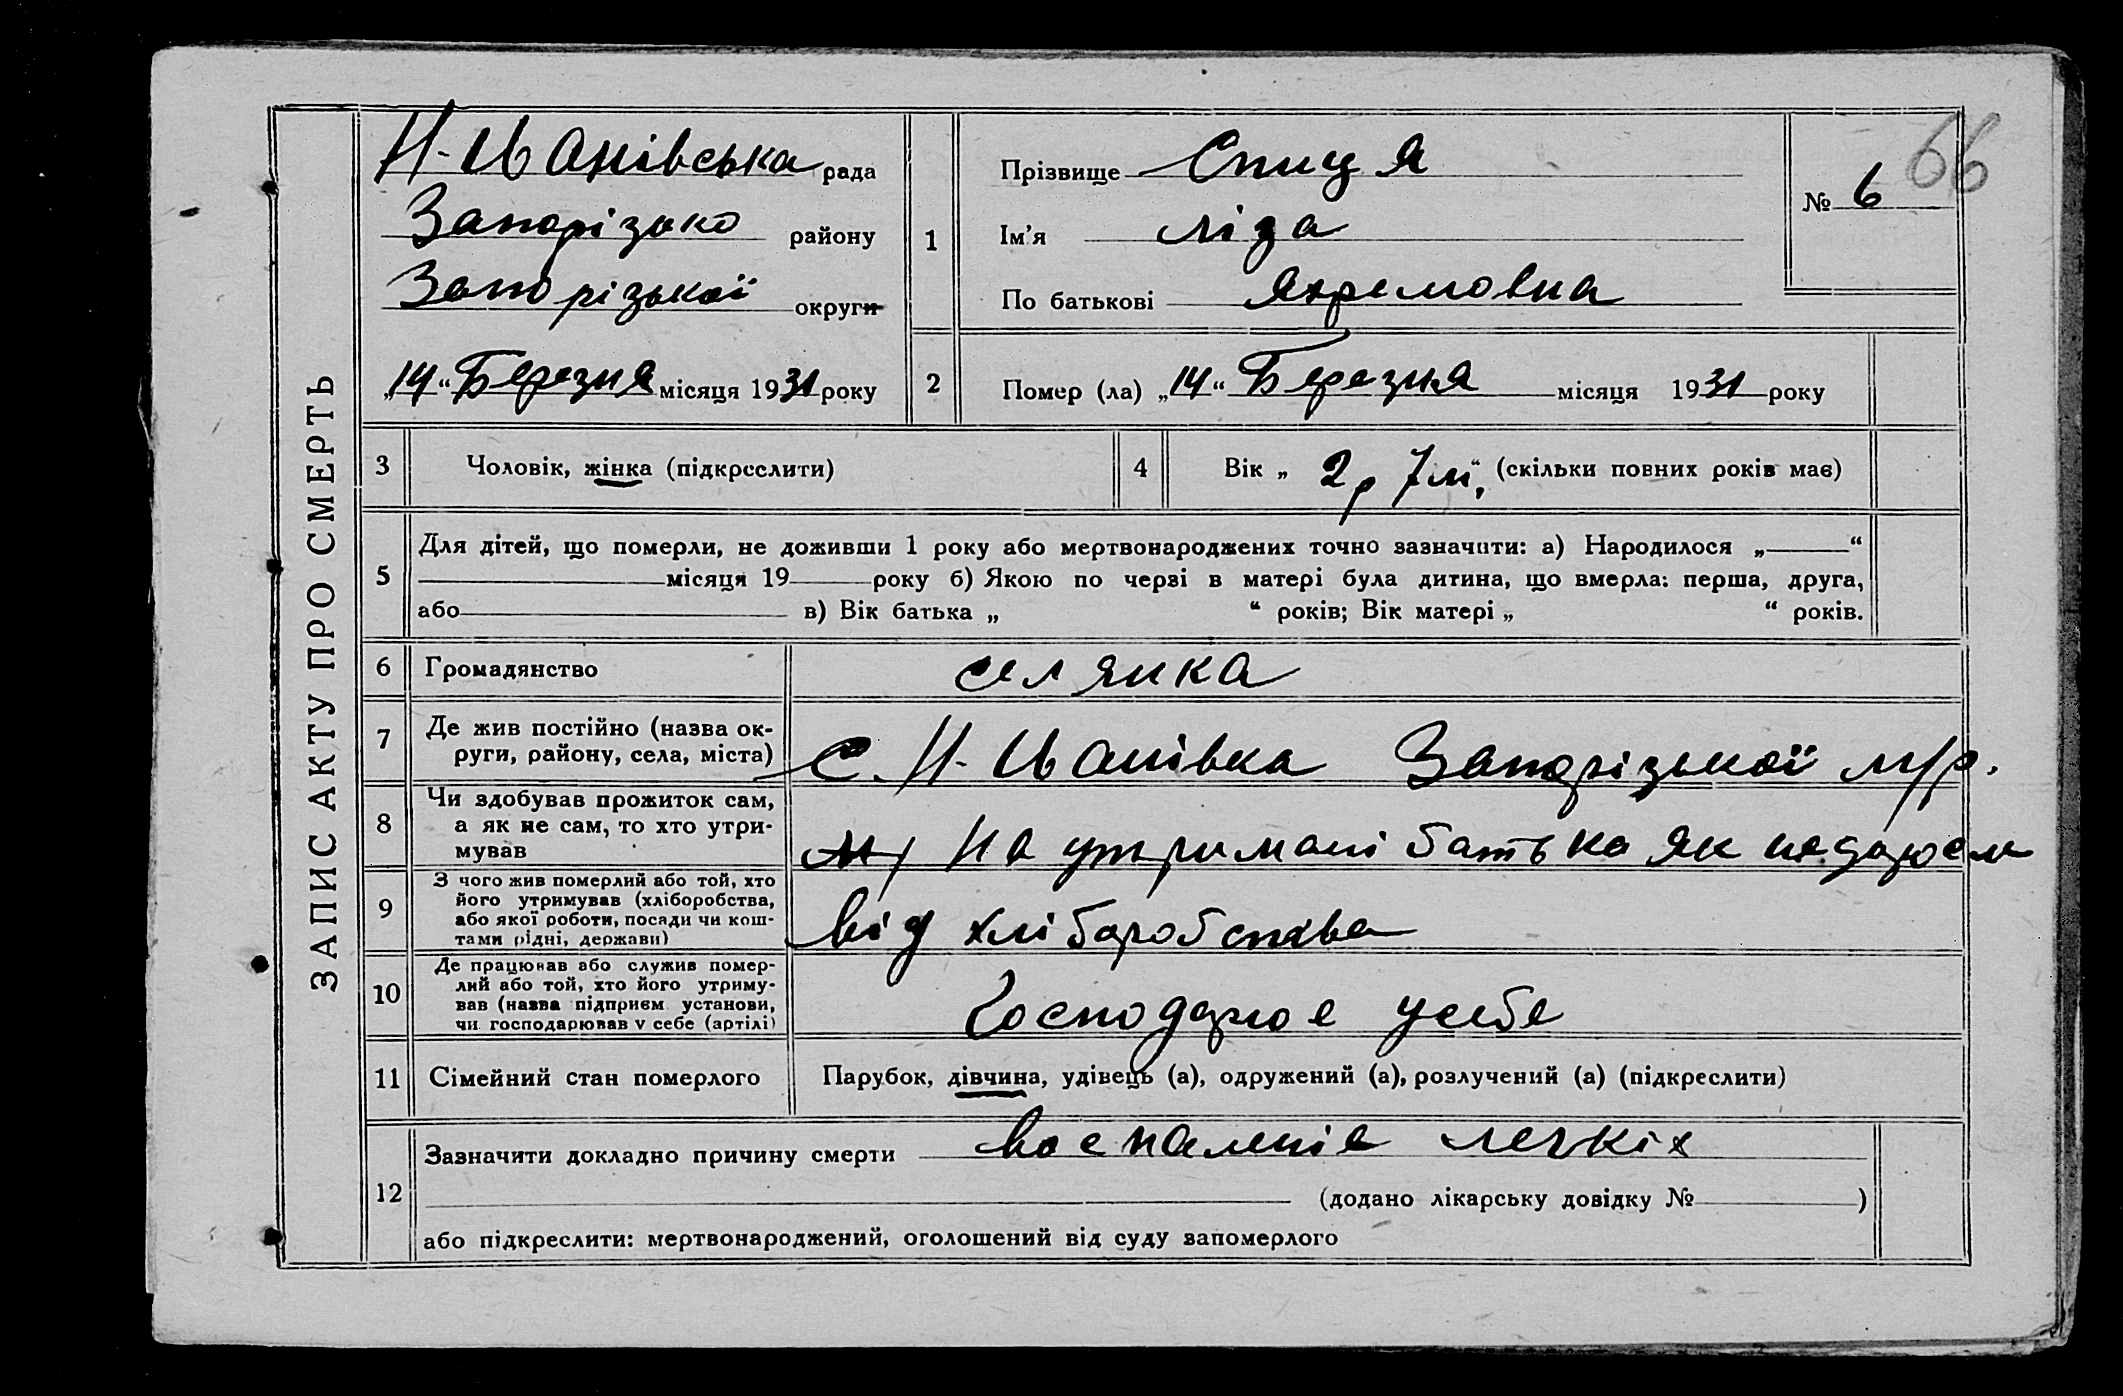 ЗАПИС АКТУ ПРО СМЕРТЬ
66
Н-Іванівська рада
Запорізько району
Запорізької округи
„14“ Березня місяця 1931 року
1
Прізвище Спиця
Ім’я Ліза
По батькові Яхремовна
№ 6
2
Помер (ла) „14“ Березня місяця 1931 року
3 Чоловік, жінка (підкреслити)
4 Вік „ 2р 7м“, (скільки повних років має)
5
Для дітей, що померли, не доживши 1 року або мертвонароджених точно зазначити: а) Народилося „ “
місяця 19 року б) Якою по черзі в матері була дитина, що вмерла: перша, друга,
або в) Вік батька „ “ років; Вік матері „ “ років.
6 Громадянство селянка
7
Де жив постійно (назва ок-
руги, району, села, міста)
с. Н-Іванівка Запорізької м/р.
8
Чи здобував прожиток сам,
а як не сам, то хто утри-
мував
На утримані батька як
9
З чого жив померлий або той, хто
його утримував (хліборобства,
або якої роботи, посади чи кош-
тами рідні, держави)
від хліборобства
10
Де працював або служив помер-
лий або той, хто його утриму-
вав (назва підприєм установи,
чи господарював у себе (артілі)
Господарює усебе
11 Сімейний стан померлого Парубок, дівчина, удівець (а), одружений (а), розлучений (а) (підкреслити)
12
Зазначити докладно причину смерти Воспаленіє легкіх
(додано лікарську довідку № )
або підкреслити: мертвонароджений, оголошений від суду запомерлого